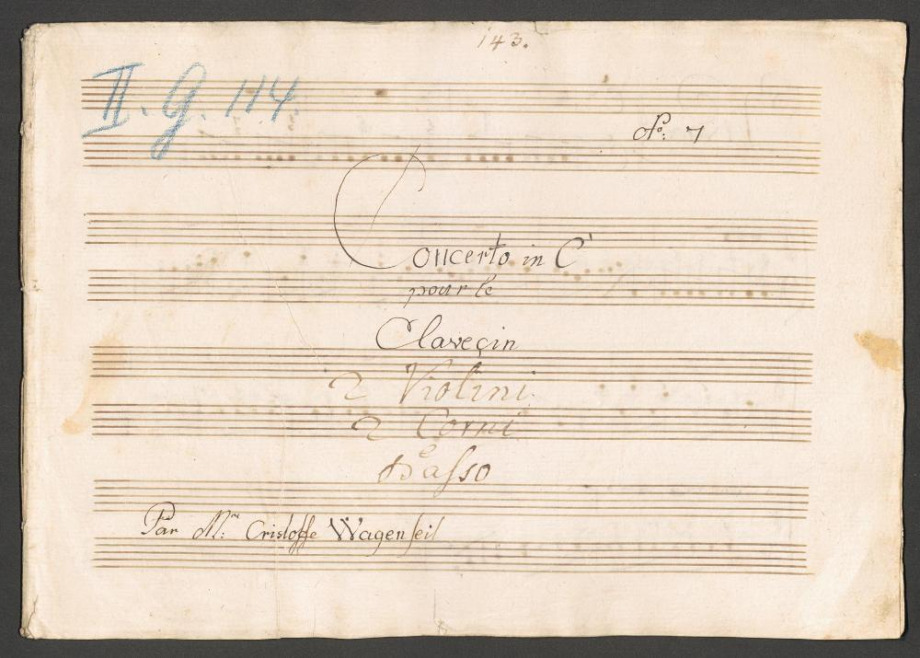 143.
II. G. 114.
No: 7
Concerto in C
pour le
Claveçin
2 Violini
2 Corni
e
Basso
Par Mr: Cristoffe Wagenseil